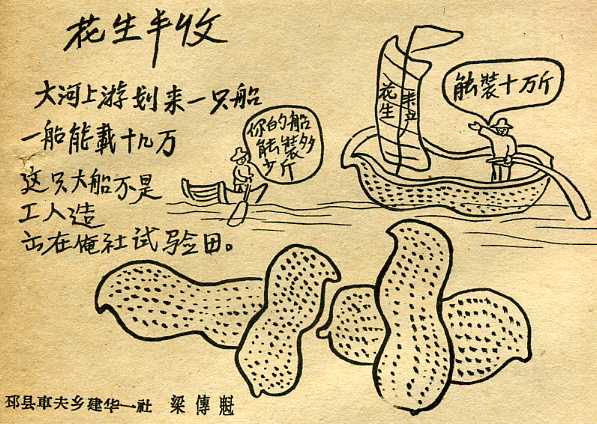 花生丰收
大河上游划来一只船
一船能載十几万
这只大船不是
工人造
出在俺社试验田。
你的船
能裝多
少斤
花生
能裝十万斤
邳县車夫乡建华一社 梁傳魁